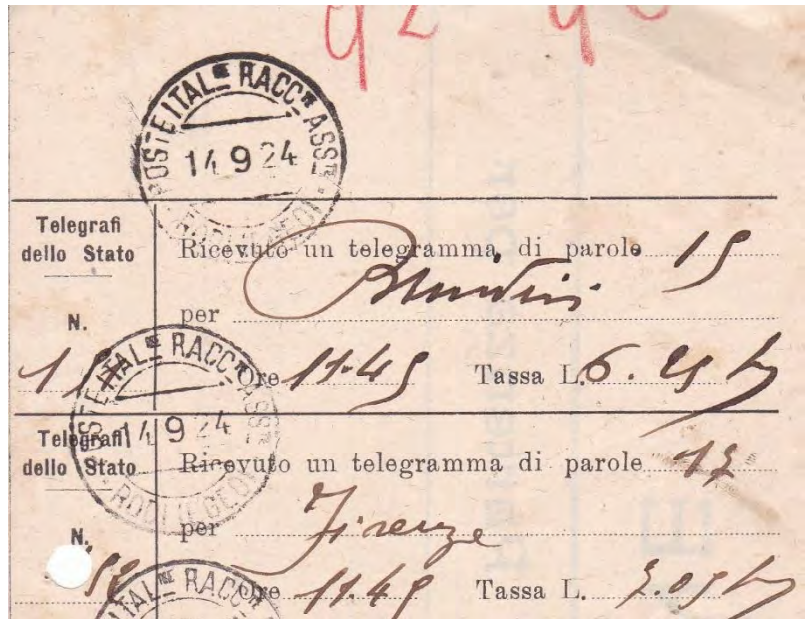 92 90
POSTE ITALNE RACCTE ASSTE
14 9 24
RODI (EGEO)
Telegrafi
dello Stato
Ricevuto un telegramma di parole 15
N.
per
Ore 11.45 Tassa L. 6.25
POSTE ITALNE RACCTE ASSTE
14 9 24
RODI (EGEO)
Telegrafi
dello Stato
Ricevuto un telegramma di parole 17
N.
per Firenze
Ore 11.45 Tassa L. 7.05
ITALNE RACCTE